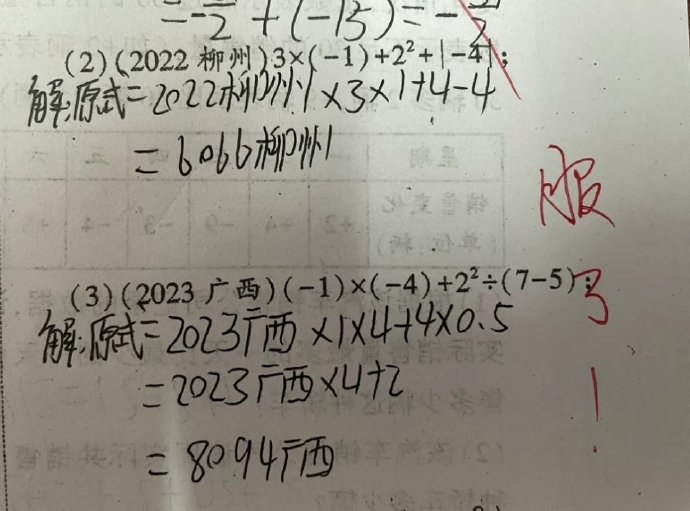 =-5/2+(-15)=-5/2
(2)(2022 柳州)3×(-1)+2²+|-4|;
解:原式=2022柳州×3×1+4-4
=6066柳州
服
(3)(2023 广西)(-1)×(-4)+2²÷(7-5);
了
解:原式=2023广西×1×4+4×0.5
=2023广西×4+2
!
=8094广西